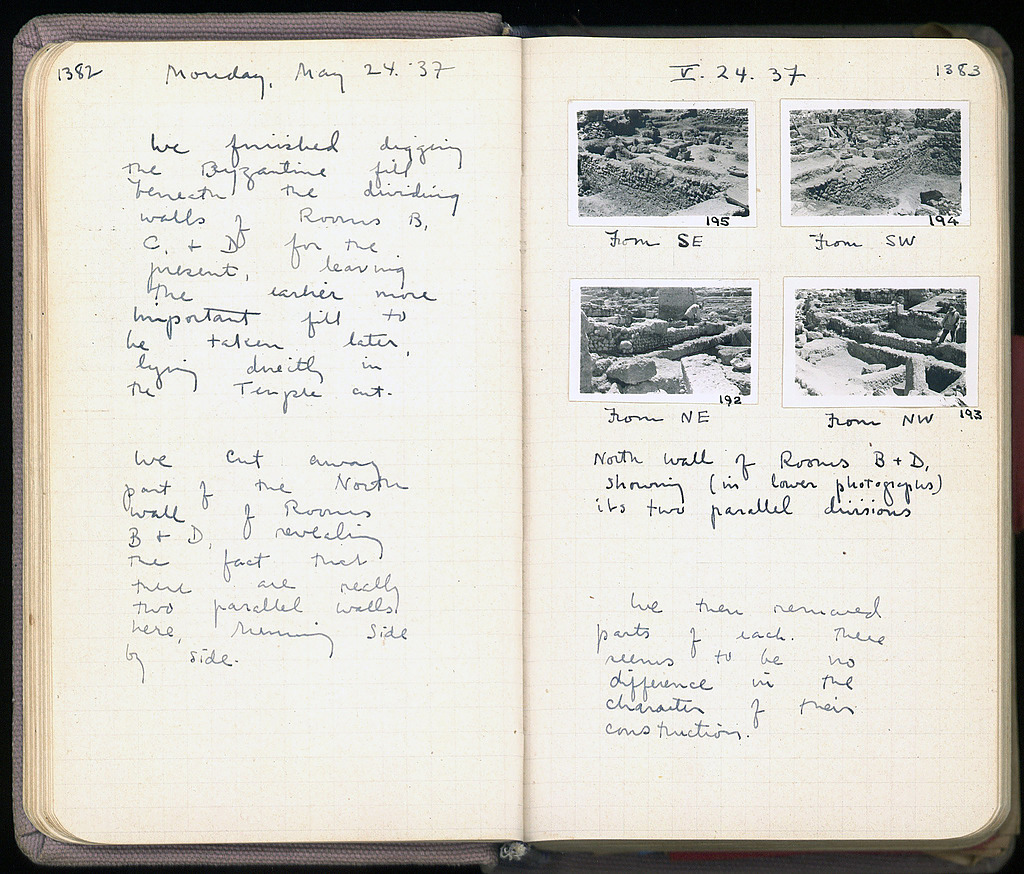 1382
Monday, May 24. '37
We finished digging
the Byzantine fill
beneath the dividing
walls of Rooms B,
C, + D for the
present, leaving
the earlier more
important fill to
be taken later,
lying directly in
the Temple cut.
We cut away
part of the North
wall of Rooms
B + D, revealing
the fact that
there are really
two parallel walls
here, running side
by side.
V. 24. 37
1383
195
From SE
194
From SW
192
From NE
193
From NW
North wall of Rooms B + D,
showing (in lower photographs)
its two parallel divisions
We then removed
parts of each. There
seems to be no
difference in the
character of their
construction.